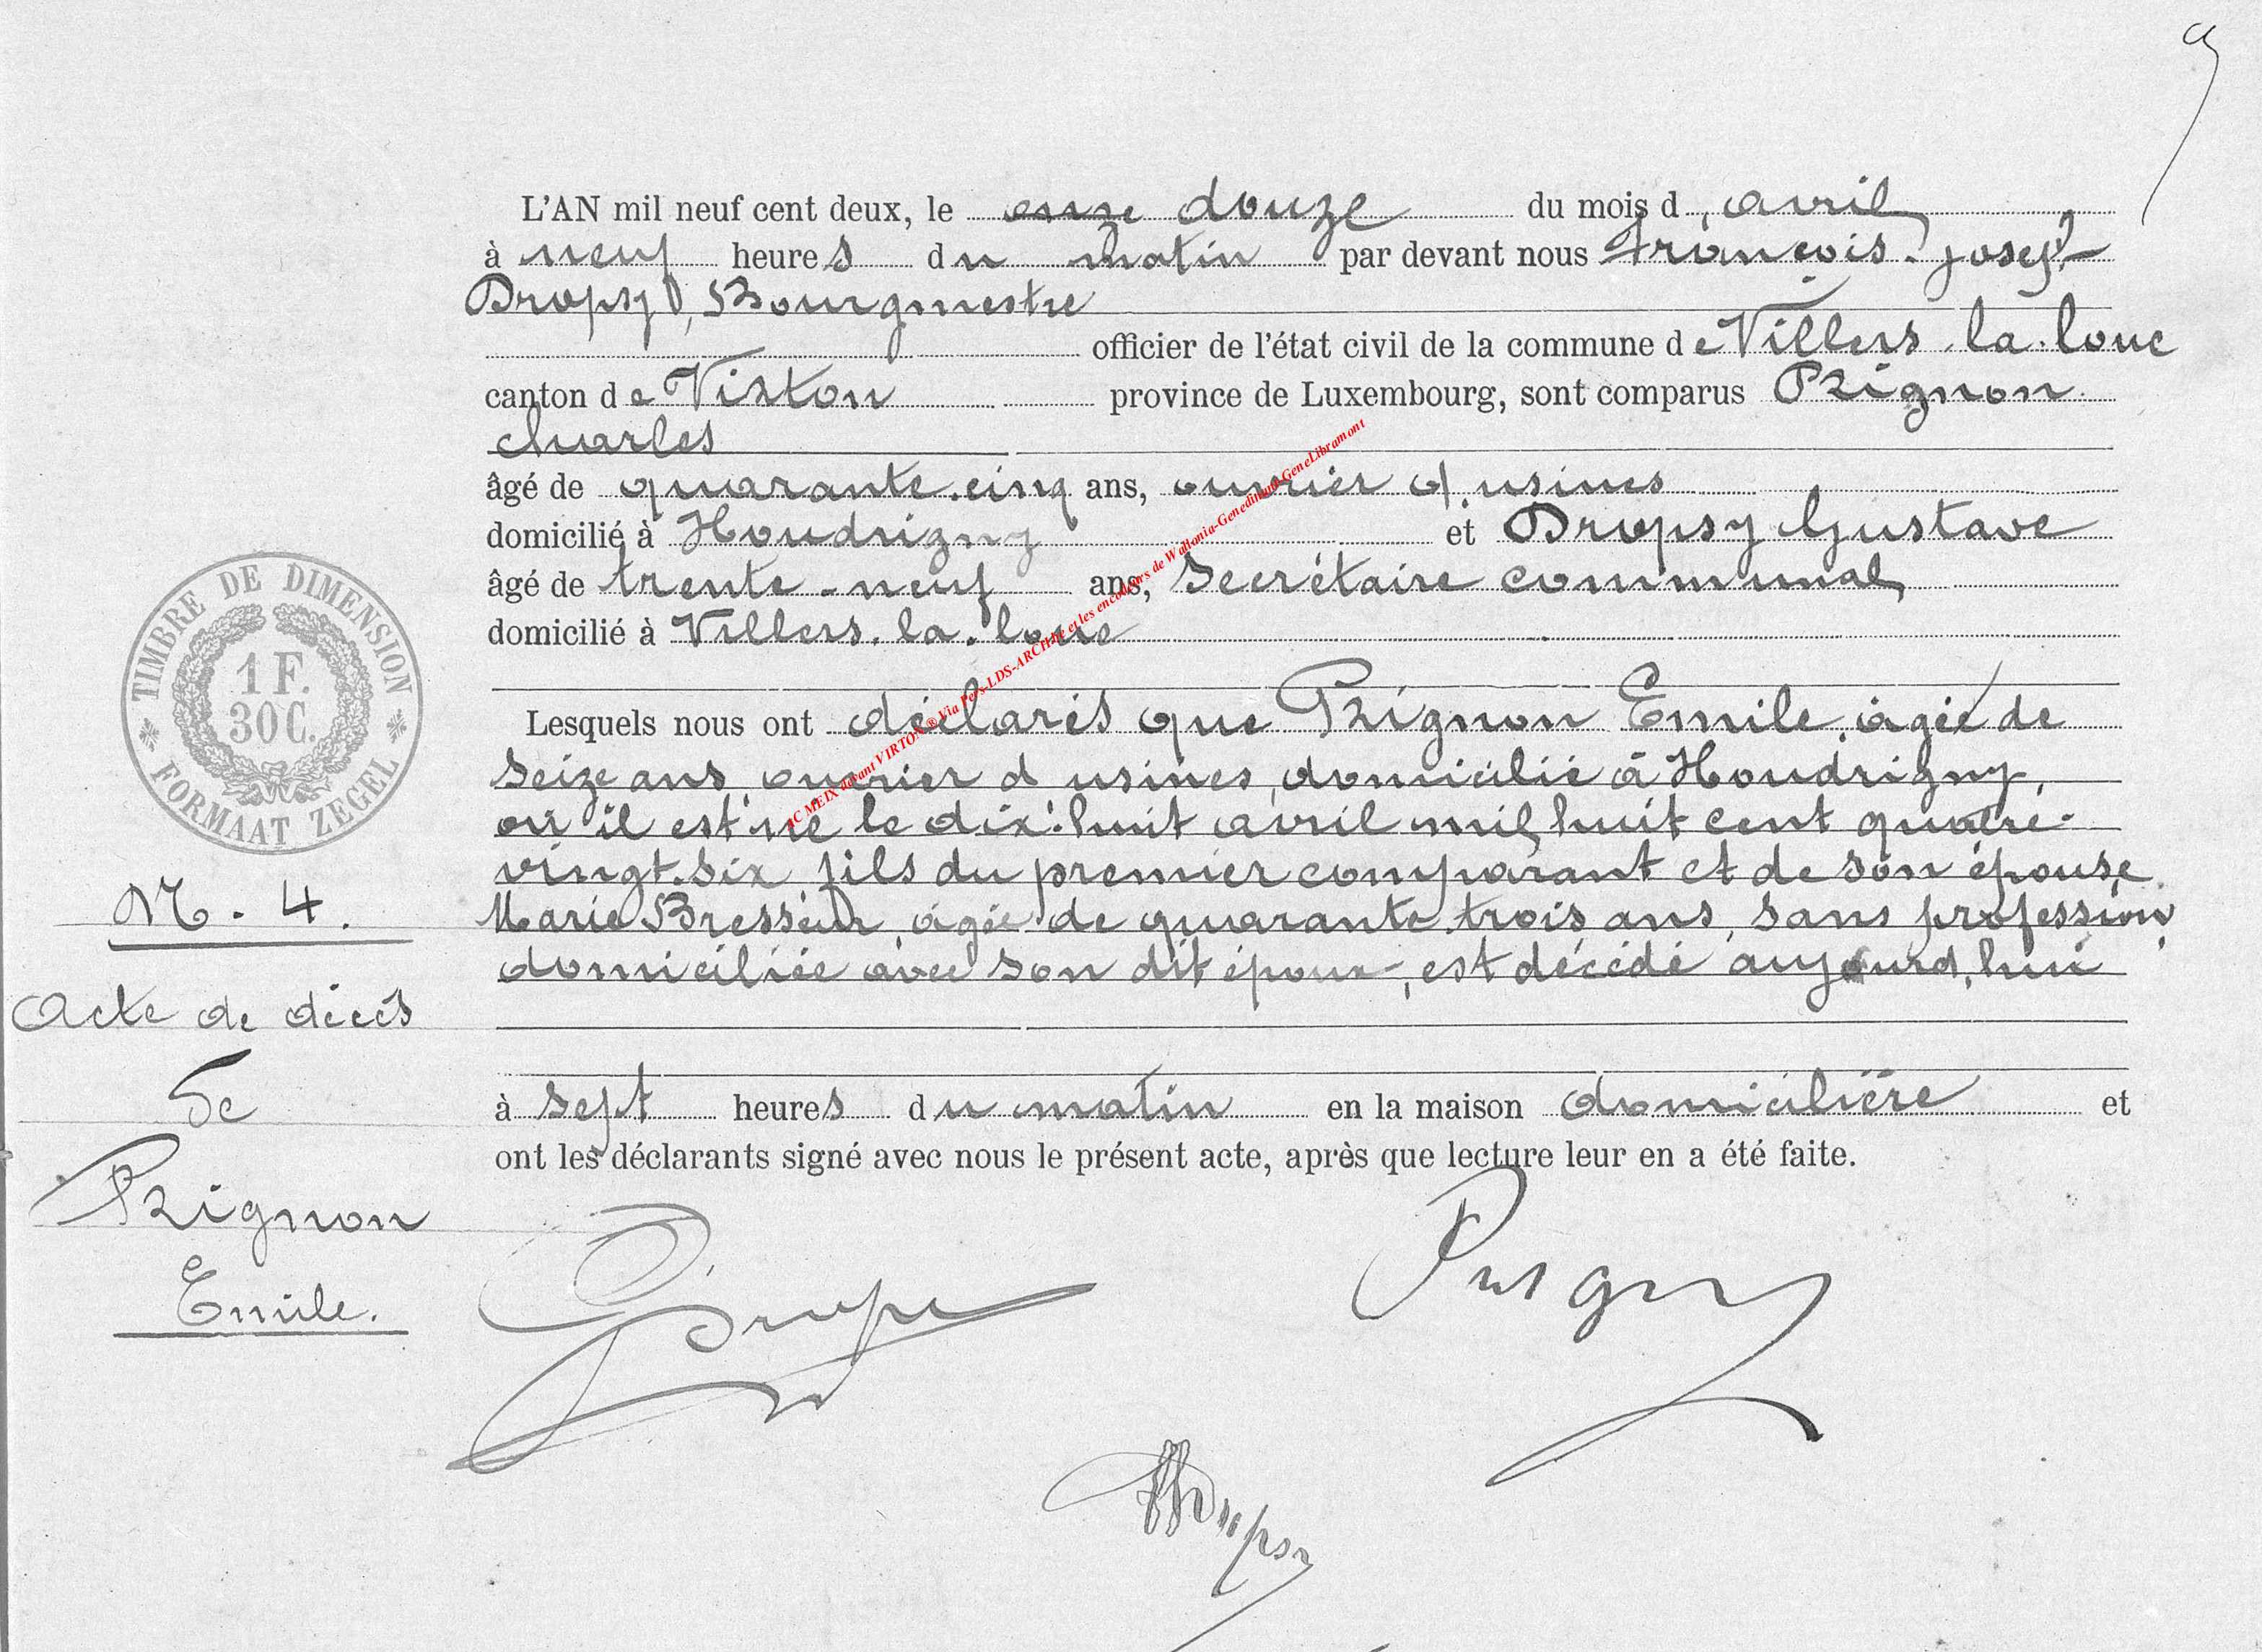 9
L'AN mil neuf cent deux, le onze douze du mois d'avril
à neuf heures du matin par devant nous François-Joseph
Dropsy, Bourgmestre
officier de l'état civil de la commune de Villers-la-loue
canton de Virton province de Luxembourg, sont comparus Prignon
charles
âgé de quarante-cinq ans, ouvrier d'usines
domicilié à Houdrigny et Dropsy Gustave
âgé de trente-neuf ans, Secrétaire communal
domicilié à Villers-la-loue
Lesquels nous ont déclarés que Prignon Emile, âgé de
seize ans, ouvrier d'usines, domicilié à Houdrigny,
où il est né le dix-huit avril mil huit cent quatre-
vingt-six, fils du premier comparant et de son épouse
Marie Bresseur, âgée de quarante-trois ans, sans profession,
domiciliée avec son dit époux, est décédé aujourd'hui
à sept heures du matin en la maison domicilière et
ont les déclarants signé avec nous le présent acte, après que lecture leur en a été faite.
TIMBRE DE DIMENSION
1 F.
30 C.
FORMAAT ZEGEL
N. 4.
Acte de décès
de
Prignon
Emile.
AC MEIX devant VIRTON ® Via Pers-LDS-ARCH.be et les encodeurs de Wallonia-Genedinant-GeneLibramont